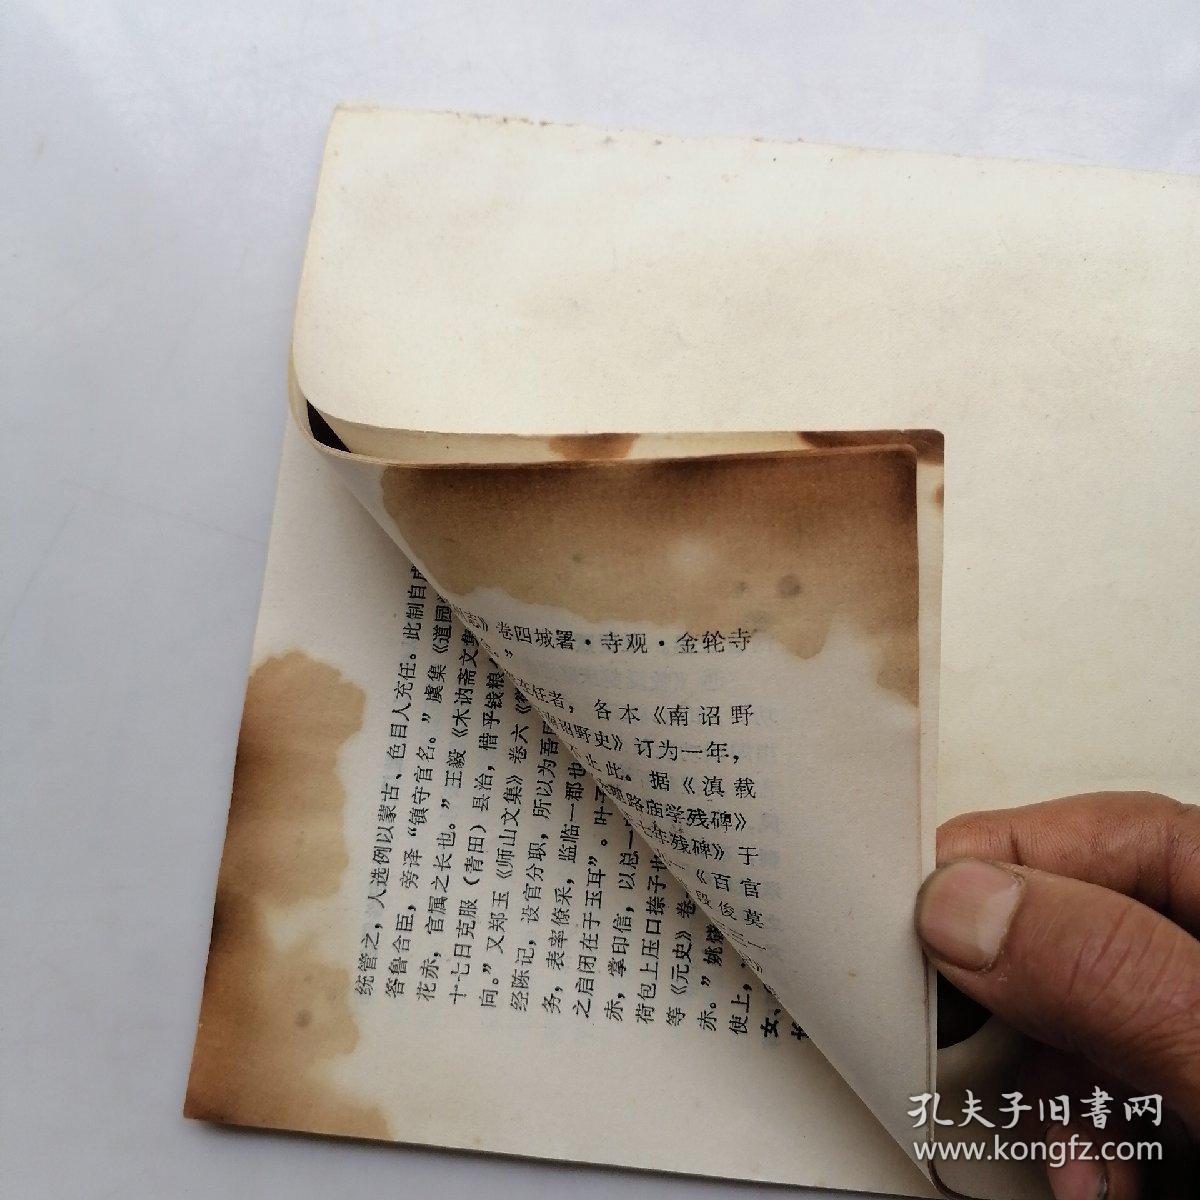 卷四城署·寺观·金轮寺
在任者，各本《南诏野
南诏野史》订为一年，
止此。据《滇载
路庙学残碑》
年残碑》于
《百官
段俊莫
统管之，人选例以蒙古、色目人充任。此制自成
答鲁合臣，旁译“镇守官名。”虞集《道园
花赤，官属之长也。”王毅《木讷斋文集
十七日克服（青田）县治，借乎钱粮
向。”又郑玉《师山文集》卷六
经陈记，设官分职，所以为吾
务，表率僚采，监临一郡也
之启闭在于玉耳”。叶子
赤，掌印信，以总一
荷包上压口捺子也
等《元史》卷
赤。”姚燧
使上，
女、
长
孔夫子旧書网
www.kongfz.com